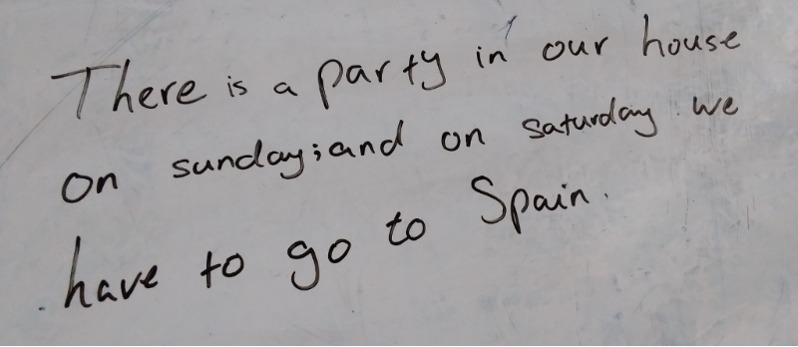 There is a party in our house
on sunday;and on saturday we
have to go to Spain.